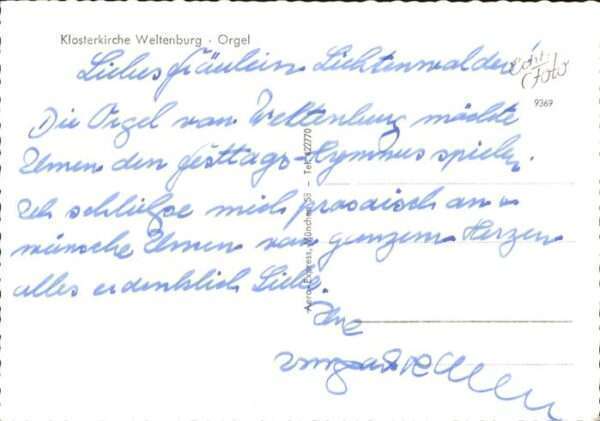 Klosterkirche Weltenburg · Orgel
Echt-
Foto
9369
Liebes Fräulein Lichtenwalder!
Die Orgel von Weltenburg möchte
Ihnen den Festtags-Hymnus spielen.
Ich schließe mich prosaisch an u
wünsche Ihnen von ganzem Herzen
alles erdenklich Liebe.
Ihre
Aero-Express, München 58 – Tel. 422770